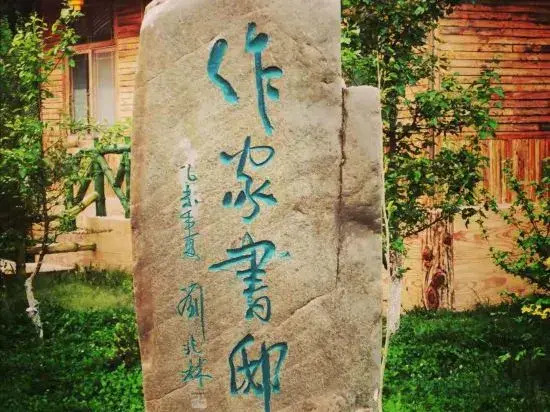 作家書邸
乙未年夏
劉兆林